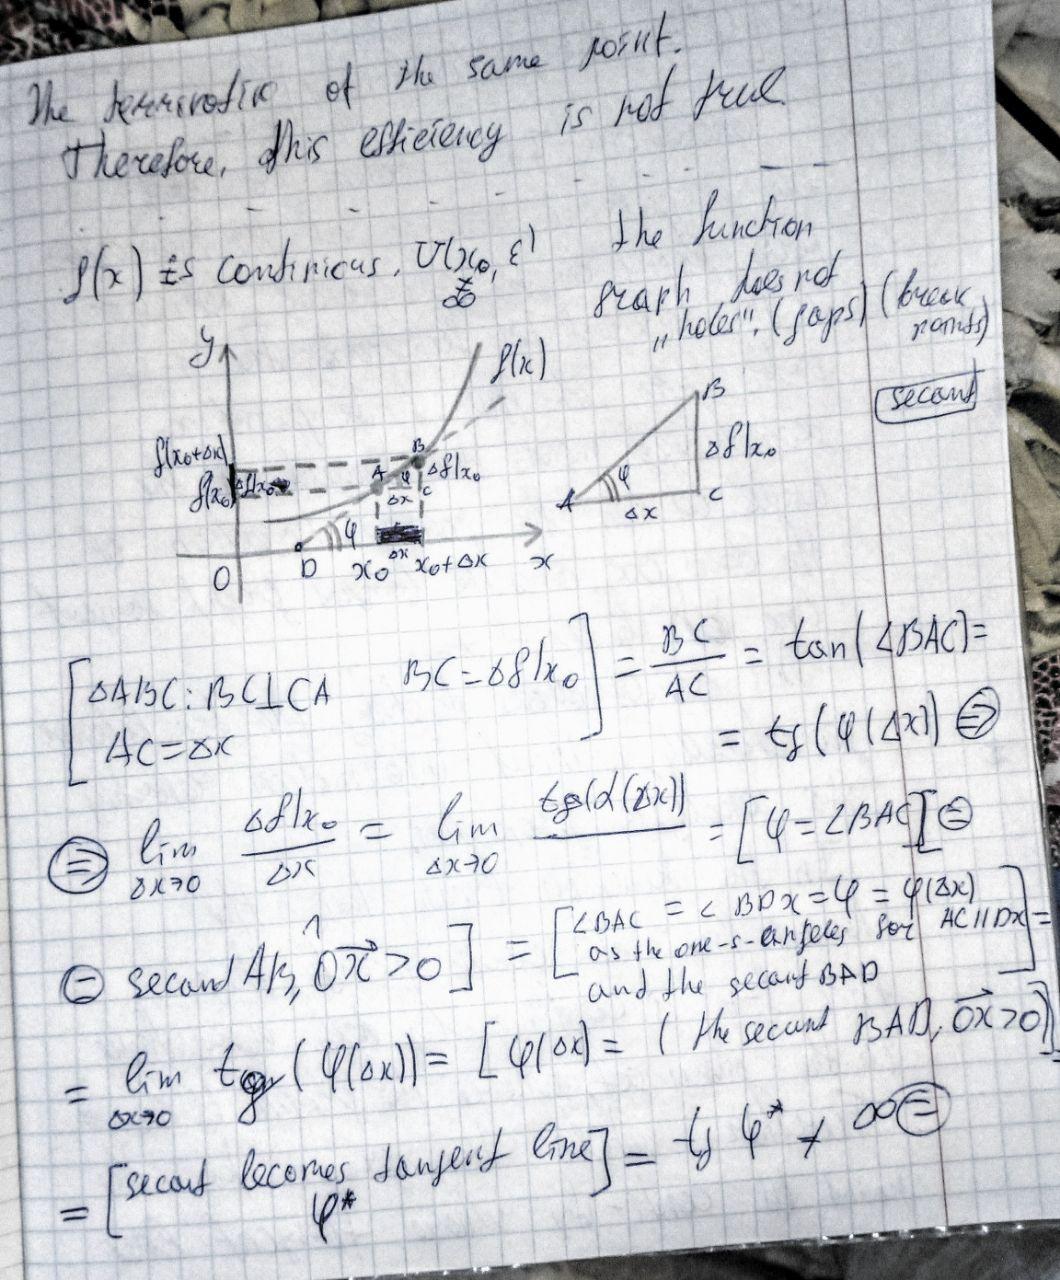 The of the same point.
Therefore, this efficiency is not true
f(x) is continious, U(x₀, ε)
the function
graph does not
„holes". (gaps) (break
points)
secant
y
f(x)
f(x₀+Δx)
f(x₀)
Δf|x₀
A
B
C
φ
Δx
Δf|x₀
φ
Δx
O
D
x₀
x₀+Δx
x
B
Δf|x₀
φ
A
Δx
C
[ΔABC: BC⊥CA BC=Δf|x₀
AC=Δx] = BC/AC = tan(∠BAC)=
= tg(φ(Δx)) ⊜
⊜ lim Δx→0 Δf|x₀/Δx = lim Δx→0 tg(α(Δx)) = [φ=∠BAC] ⊜
⊜ secand AB, Ox>0] = [∠BAC = ∠BDX=φ = φ(Δx)
as the one-s-angeles for AC||DX
and the secant BAD] =
= lim Δx→0 tg(φ(Δx)) = [φ(Δx) = (the secant BAD, Ox>0)] =
= [secant becomes tangent line] = tg φ* ≠ ∞ ⊜
φ*